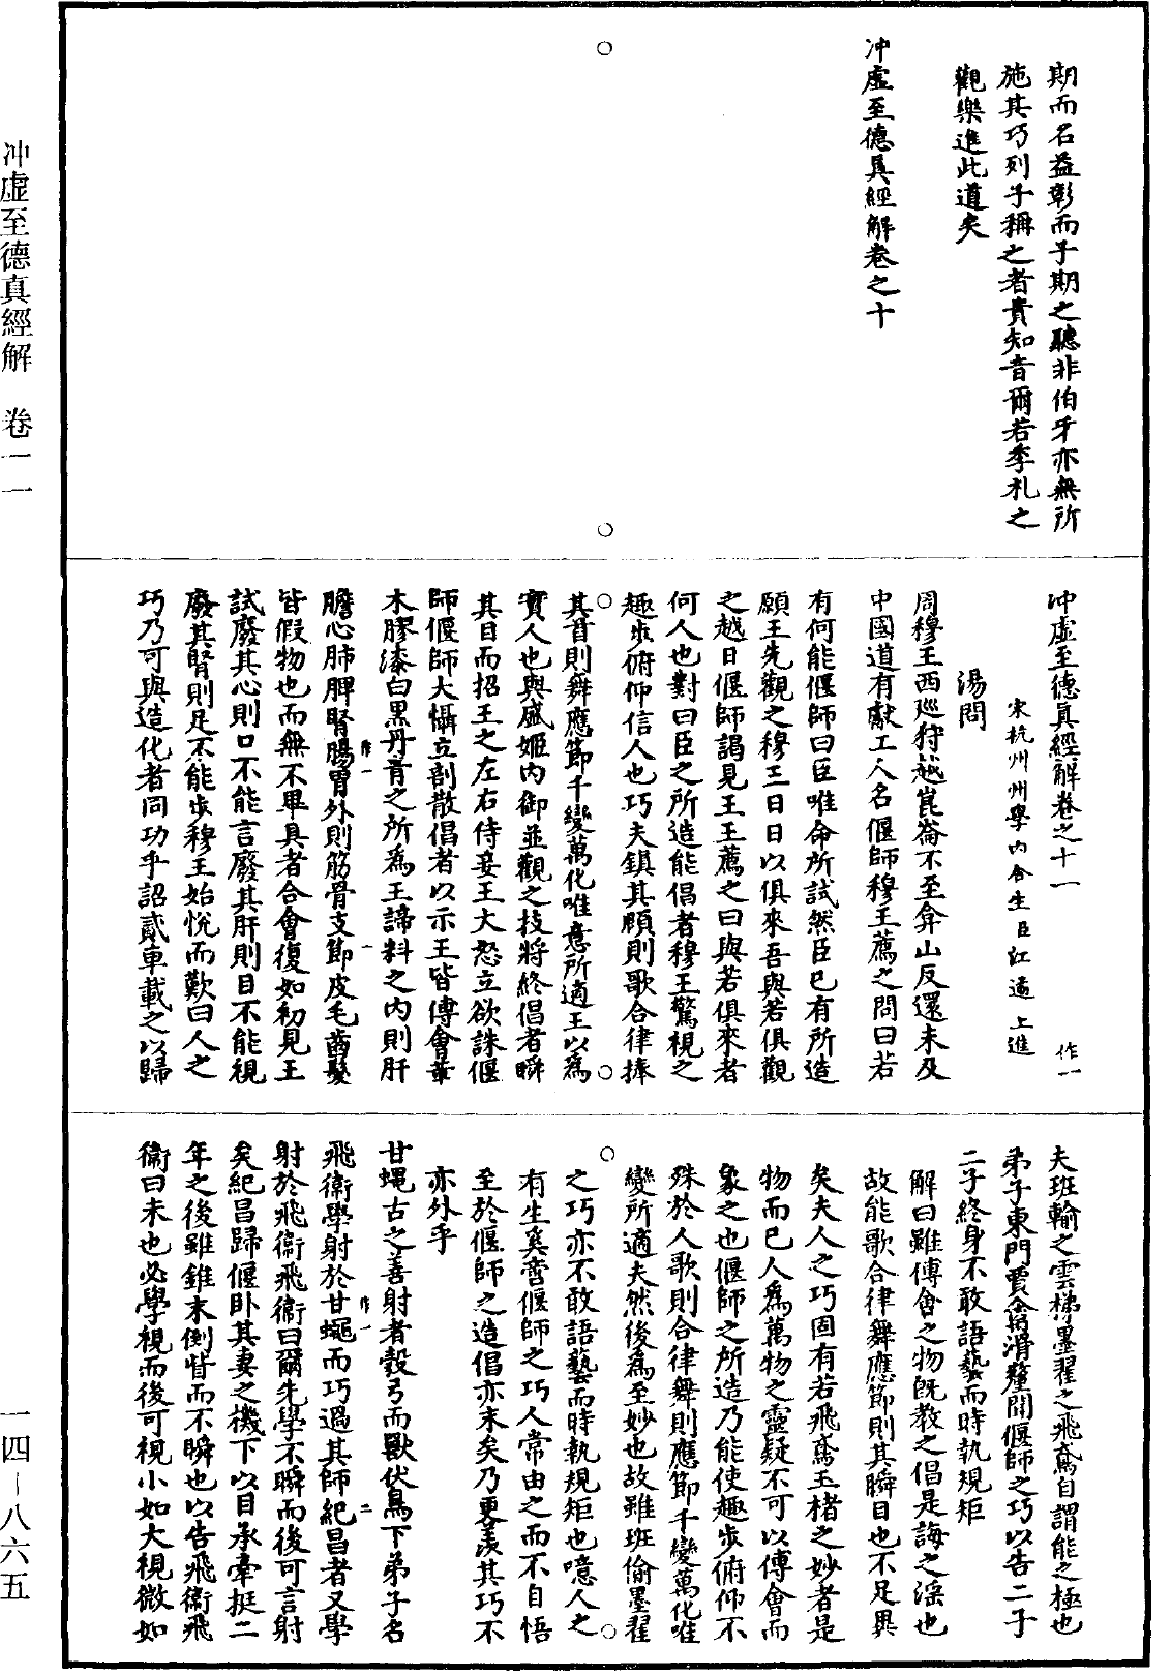 期而名益彰而子期之聽非伯牙亦無所
施其巧列子稱之者貴知音爾若季札之
觀樂進此道矣
冲虛至德真經解卷之十
冲虛至德真經解卷之十一 作一
宋杭州州學內舍生臣江遹上進
湯問
周穆王西巡狩越崑崙不至弇山反還未及
中國道有獻工人名偃師穆王薦之問曰若
有何能偃師曰臣唯命所試然臣已有所造
願王先觀之穆王曰日以俱來吾與若俱觀
之越日偃師謁見王王薦之曰與若俱來者
何人也對曰臣之所造能倡者穆王驚視之
趣步俯仰信人也巧夫鎮其頤則歌合律捧
其首則舞應節千變萬化唯意所適王以為
實人也與盛姬內御並觀之技將終倡者瞬
其目而招王之左右侍妾王大怒立欲誅偃
師偃師大懾立剖散倡者以示王皆傅會革
木膠漆白黑丹青之所為王諦料之內則肝
膽心肺脾腎腸胃外則筋骨支節皮毛齒髮
作一 一
皆假物也而無不畢具者合會復如初見王
試廢其心則口不能言廢其肝則目不能視
廢其腎則足不能步穆王始悅而歎曰人之
巧乃可與造化者同功乎詔貳車載之以歸
夫班輸之雲梯墨翟之飛鳶自謂能之極也
弟子東門賈禽滑釐聞偃師之巧以告二子
二子終身不敢語藝而時執規矩
解曰雖傅會之物旣教之倡是誨之淫也
故能歌合律舞應節則其瞬目也不足異
矣夫人之巧固有若飛鳶玉楮之妙者是
物而已人為萬物之靈疑不可以傅會而
象之也偃師之所造乃能使趣步俯仰不
殊於人歌則合律舞則應節千變萬化唯
變所適夫然後為至妙也故雖班偷墨翟
之巧亦不敢語藝而時執規矩也噫人之
有生奚啻偃師之巧人常由之而不自悟
至於偃師之造倡亦末矣乃更羨其巧不
亦外乎
甘蠅古之善射者彀弓而獸伏鳥下弟子名
飛衛學射於甘蠅而巧過其師紀昌者又學
作一 二
射於飛衛飛衛曰爾先學不瞬而後可言射
矣紀昌歸偃臥其妻之機下以目承牽挺二
年之後雖錐末倒眥而不瞬也以告飛衛飛
衛曰未也必學視而後可視小如大視微如
冲虛至德真經解 卷一一
一四－八六五